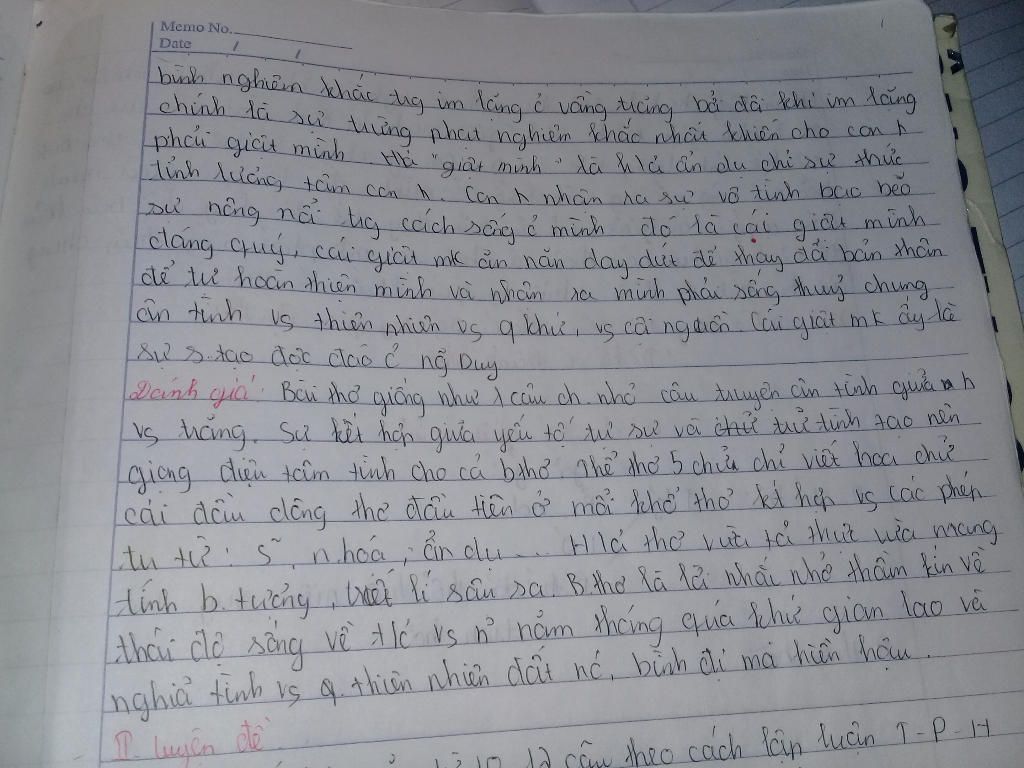 Memo No.
Date / /
bình nghiêm khắc trg im lặng ẻ vầng trăng bởi đôi khi im lặng
chính là sự trừng phạt nghiêm khắc nhất khiến cho con h
phải giật mình Hả "giật mình" là h/ả ẩn dụ chỉ sự thức
tỉnh lương tâm con h. Con h nhận ra sự vô tình bạc bẽo
sự nông nổi trg cách sống ẻ mình đó là cái giật mình
đáng quý, cái giật mk ăn năn day dứt để thay đổi bản thân
để tự hoàn thiện mình và nhận ra mình phải sống thuỷ chung
ân tình vs thiên nhiên vs q khứ, vs cội nguồn Cái giật mk ấy là
sự s.tạo độc đáo ẻ ng Duy
Đánh giá: Bài thơ giống như 1 câu ch nhỏ câu truyện ân tình giữa h
vs trăng. Sự kết hợp giữa yếu tố tự sự và trữ tình tạo nên
giọng điệu tâm tình cho cả b.thơ. Thể thơ 5 chữ chỉ viết hoa chữ
cái đầu dòng thơ đầu tiên ở mỗi khổ thơ kết hợp vs các phép
tu từ: S², n.hoá, ẩn dụ... H/ả thơ vừa tả thực vừa mang
tính b.tượng, triết lí sâu sa B.thơ là lời nhắc nhở thầm kín về
thái độ sống về t/c vs n~ năm tháng quá khứ gian lao và
nghĩa tình vs q. thiên nhiên đất nc, bình dị mà hiền hậu.
II. luyện đề
12 câu theo cách lập luận T-P-H